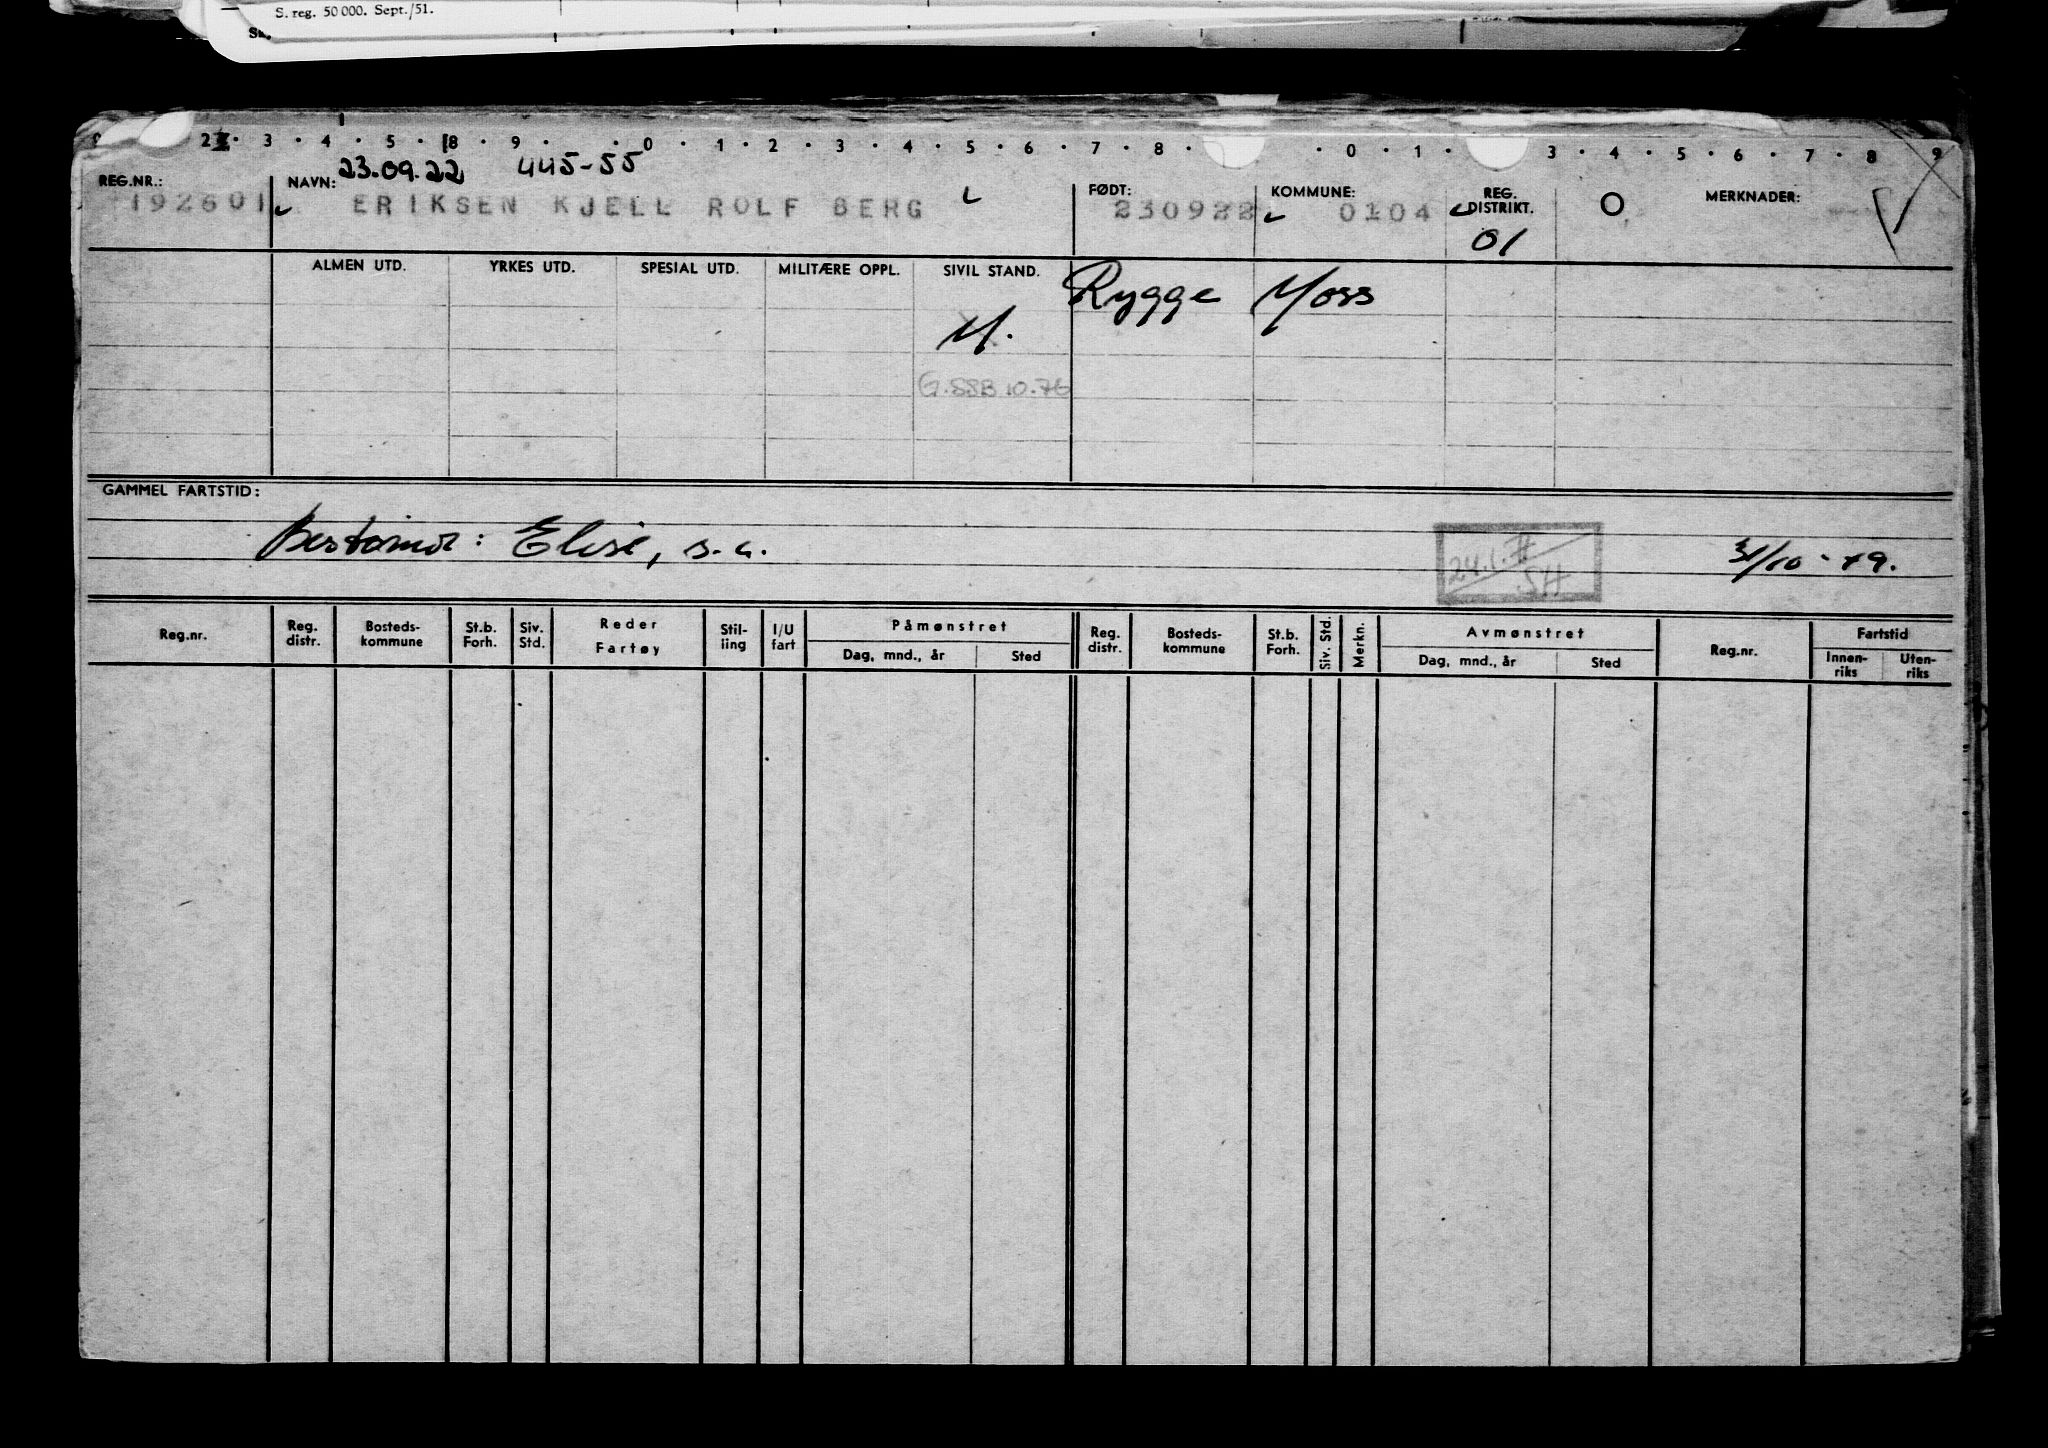 S. reg. 50 000. Sept./51.
2 3 · 4 · 5 · 8 · 9 · · 0 · 1 · 2 · 3 · 4 · 5 · 6 · 7 · 8 · · 0 · 1 · 3 · 4 · 5 · 6 · 7 · 8 9
23.09.22 445-55
REG.NR.: NAVN: FØDT: KOMMUNE: REG. DISTRIKT. O MERKNADER:
192601 ERIKSEN KJELL ROLF BERG 230922 0104
01
ALMEN UTD. YRKES UTD. SPESIAL UTD. MILITÆRE OPPL. SIVIL STAND.
Rygge Moss
G.SSB 10.76
GAMMEL FARTSTID:
Bestemor: Elise, s.a.
24.1.
SH
31/10-49.
Reg.nr. Reg. distr. Bosteds-kommune St.b. Forh. Siv. Std. Reder Fartøy Stil-ling I/U fart Påmønstret Dag, mnd., år Sted Reg. distr. Bosteds-kommune St.b. Forh. Siv. Std. Merkn. Avmønstret Dag, mnd., år Sted Reg.nr. Fartstid Innen-riks Uten-riks